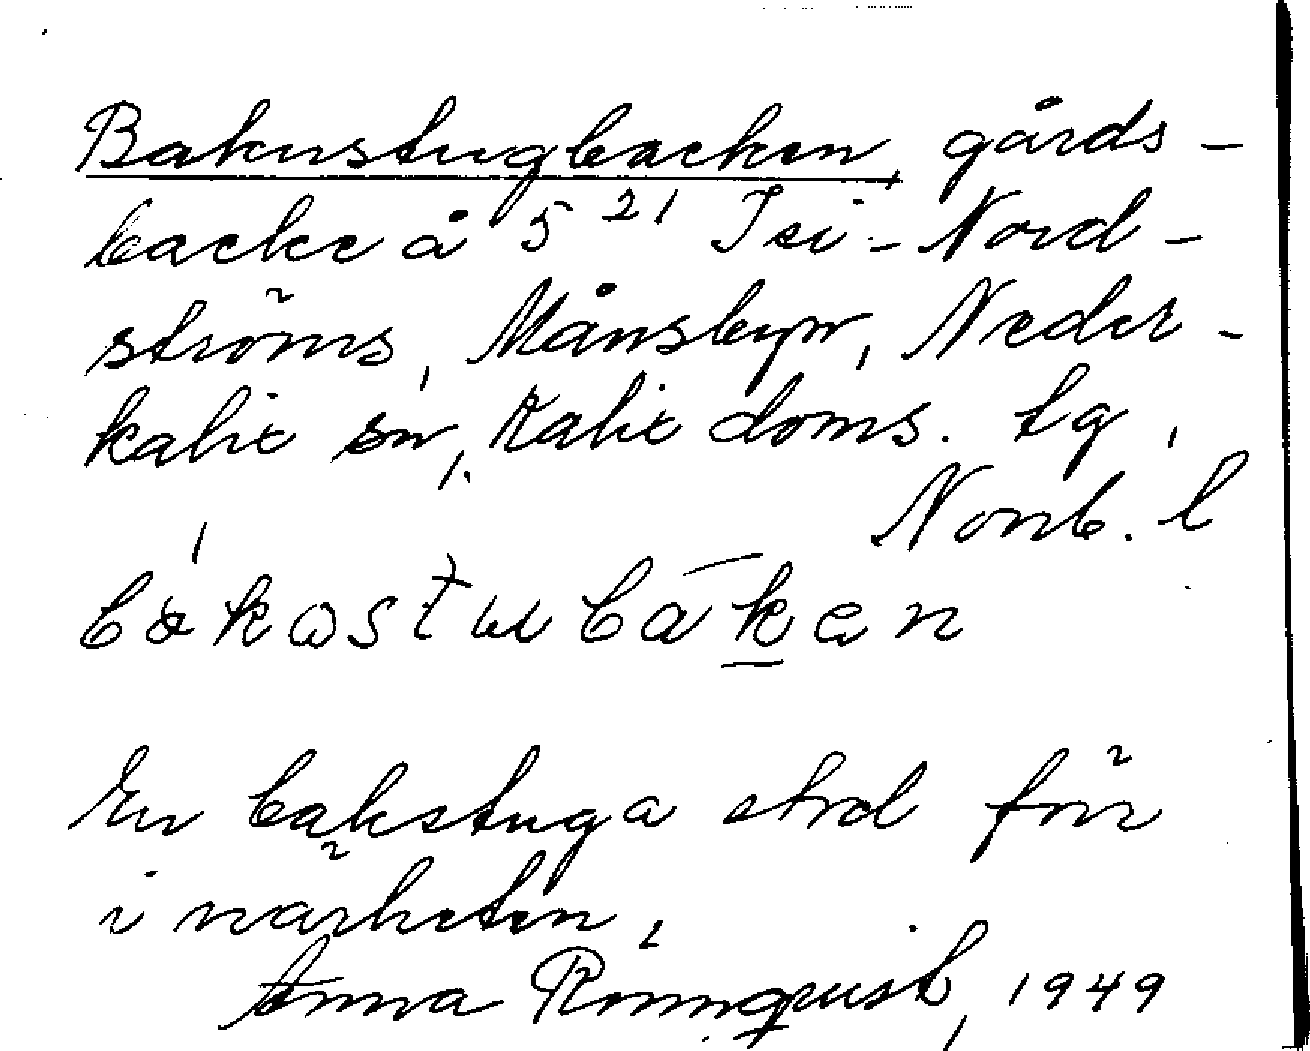 Bakustugbacken, gårds-
backe å 5²¹ Isi-Nord-
ströms, Månsbyn, Neder-
kalix sn, Kalix doms. tg,
Norrb. l
bakastubakan
En bakstuga stod förr
i närheten,
Anna Rönnquist, 1949